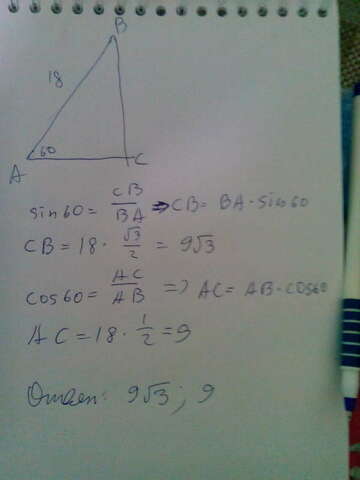 B
18
60
A
C
sin60 = CB/BA => CB = BA · sin60
CB = 18 · √3/2 = 9√3
cos60 = AC/AB => AC = AB · cos60
AC = 18 · 1/2 = 9
Ответ: 9√3 ; 9